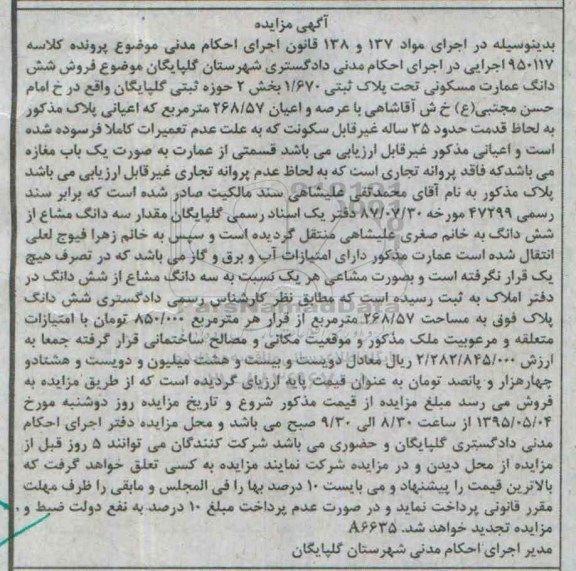 آگهی مزایده
بدینوسیله در اجرای مواد ۱۳۷ و ۱۳۸ قانون اجرای احکام مدنی موضوع پرونده کلاسه
۹۵۰۱۱۷ اجرایی در اجرای احکام مدنی دادگستری شهرستان گلپایگان موضوع فروش شش
دانگ عمارت مسکونی تحت پلاک ثبتی ۱/۶۷۰ بخش ۲ حوزه ثبتی گلپایگان واقع در خ امام
حسن مجتبی(ع) خ ش آقاشاهی با عرصه و اعیان ۲۶۸/۵۷ مترمربع که اعیانی پلاک مذکور
به لحاظ قدمت حدود ۳۵ ساله غیرقابل سکونت که به علت عدم تعمیرات کاملا فرسوده شده
است و اعیانی مذکور غیرقابل ارزیابی می باشد قسمتی از عمارت به صورت یک باب مغازه
می باشدکه فاقد پروانه تجاری است که به لحاظ عدم پروانه تجاری غیرقابل ارزیابی می باشد
پلاک مذکور به نام آقای محمدتقی علیشاهی سند مالکیت صادر شده است که برابر سند
رسمی ۴۷۲۹۹ مورخه ۸۷/۰۷/۳۰ دفتر یک اسناد رسمی گلپایگان مقدار سه دانگ مشاع از
شش دانگ به خانم صغری علیشاهی منتقل گردیده است و سپس به خانم زهرا فیوج لعلی
انتقال شده است عمارت مذکور دارای امتیازات آب و برق و گاز می باشد که در تصرف هیچ
یک قرار نگرفته است و بصورت مشاعی هر یک نسبت به سه دانگ مشاع از شش دانگ در
دفتر املاک به ثبت رسیده است که مطابق نظر کارشناس رسمی دادگستری شش دانگ
پلاک فوق به مساحت ۲۶۸/۵۷ مترمربع از قرار هر مترمربع ۸۵۰/۰۰۰ تومان با امتیازات
متعلقه و مرغوبیت ملک مذکور و موقعیت مکانی و مصالح ساختمانی قرار گرفته جمعا به
ارزش ۲/۲۸۲/۸۴۵/۰۰۰ ریال معادل دویست و بیست و هشت میلیون و دویست و هشتادو
چهارهزار و پانصد تومان به عنوان قیمت پایه ارزیای گردیده است که از طریق مزایده به
فروش می رسد مبلغ مزایده از قیمت مذکور شروع و تاریخ مزایده روز دوشنبه مورخ
۱۳۹۵/۰۵/۰۴ از ساعت ۸/۳۰ الی ۹/۳۰ صبح می باشد و محل مزایده دفتر اجرای احکام
مدنی دادگستری گلپایگان و حضوری می باشد شرکت کنندگان می توانند ۵ روز قبل از
مزایده از محل دیدن و در مزایده شرکت نمایند مزایده به کسی تعلق خواهد گرفت که
بالاترین قیمت را پیشنهاد و می بایست ۱۰ درصد بها را فی المجلس و مابقی را ظرف مهلت
مقرر قانونی پرداخت نماید و در صورت عدم پرداخت مبلغ ۱۰ درصد به نفع دولت ضبط و
مزایده تجدید خواهد شد. A۶۶۳۵
مدیر اجرای احکام مدنی شهرستان گلپایگان